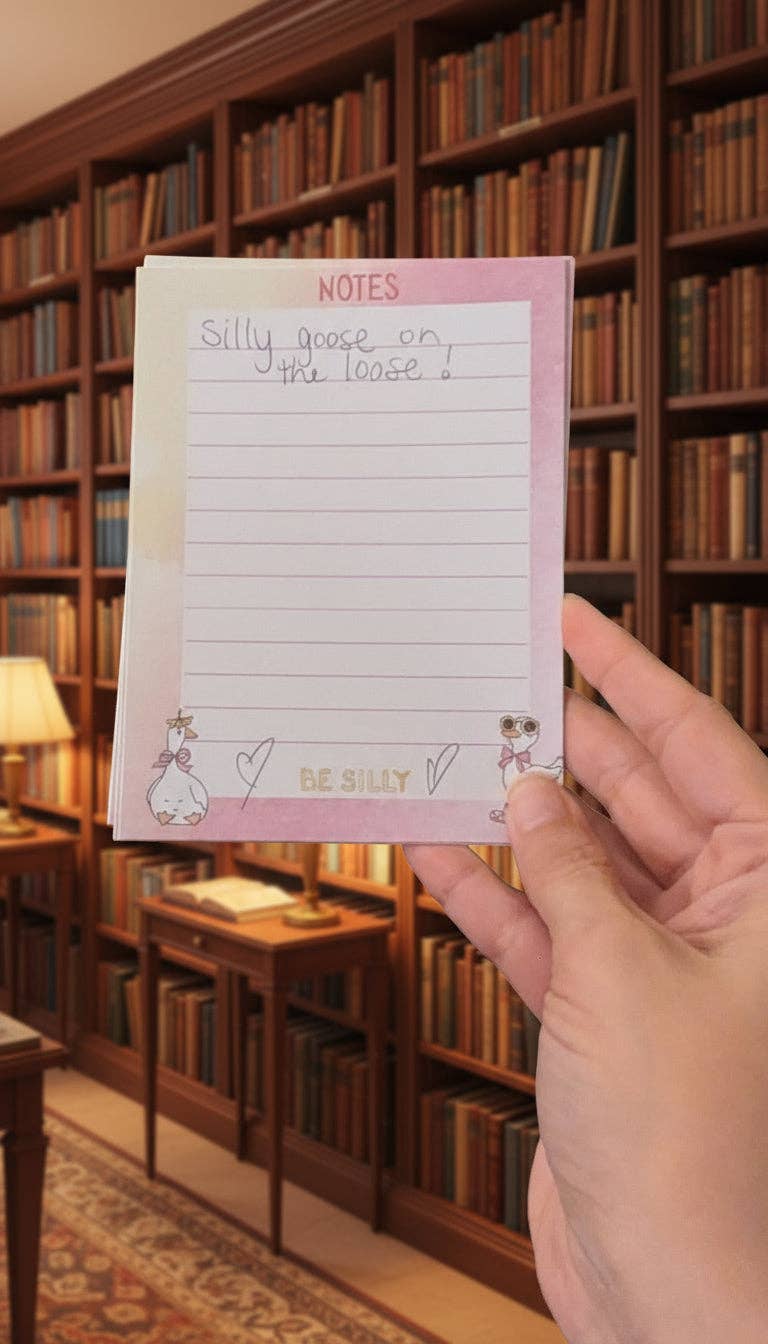 NOTES
Silly goose on
the loose !
BE SILLY